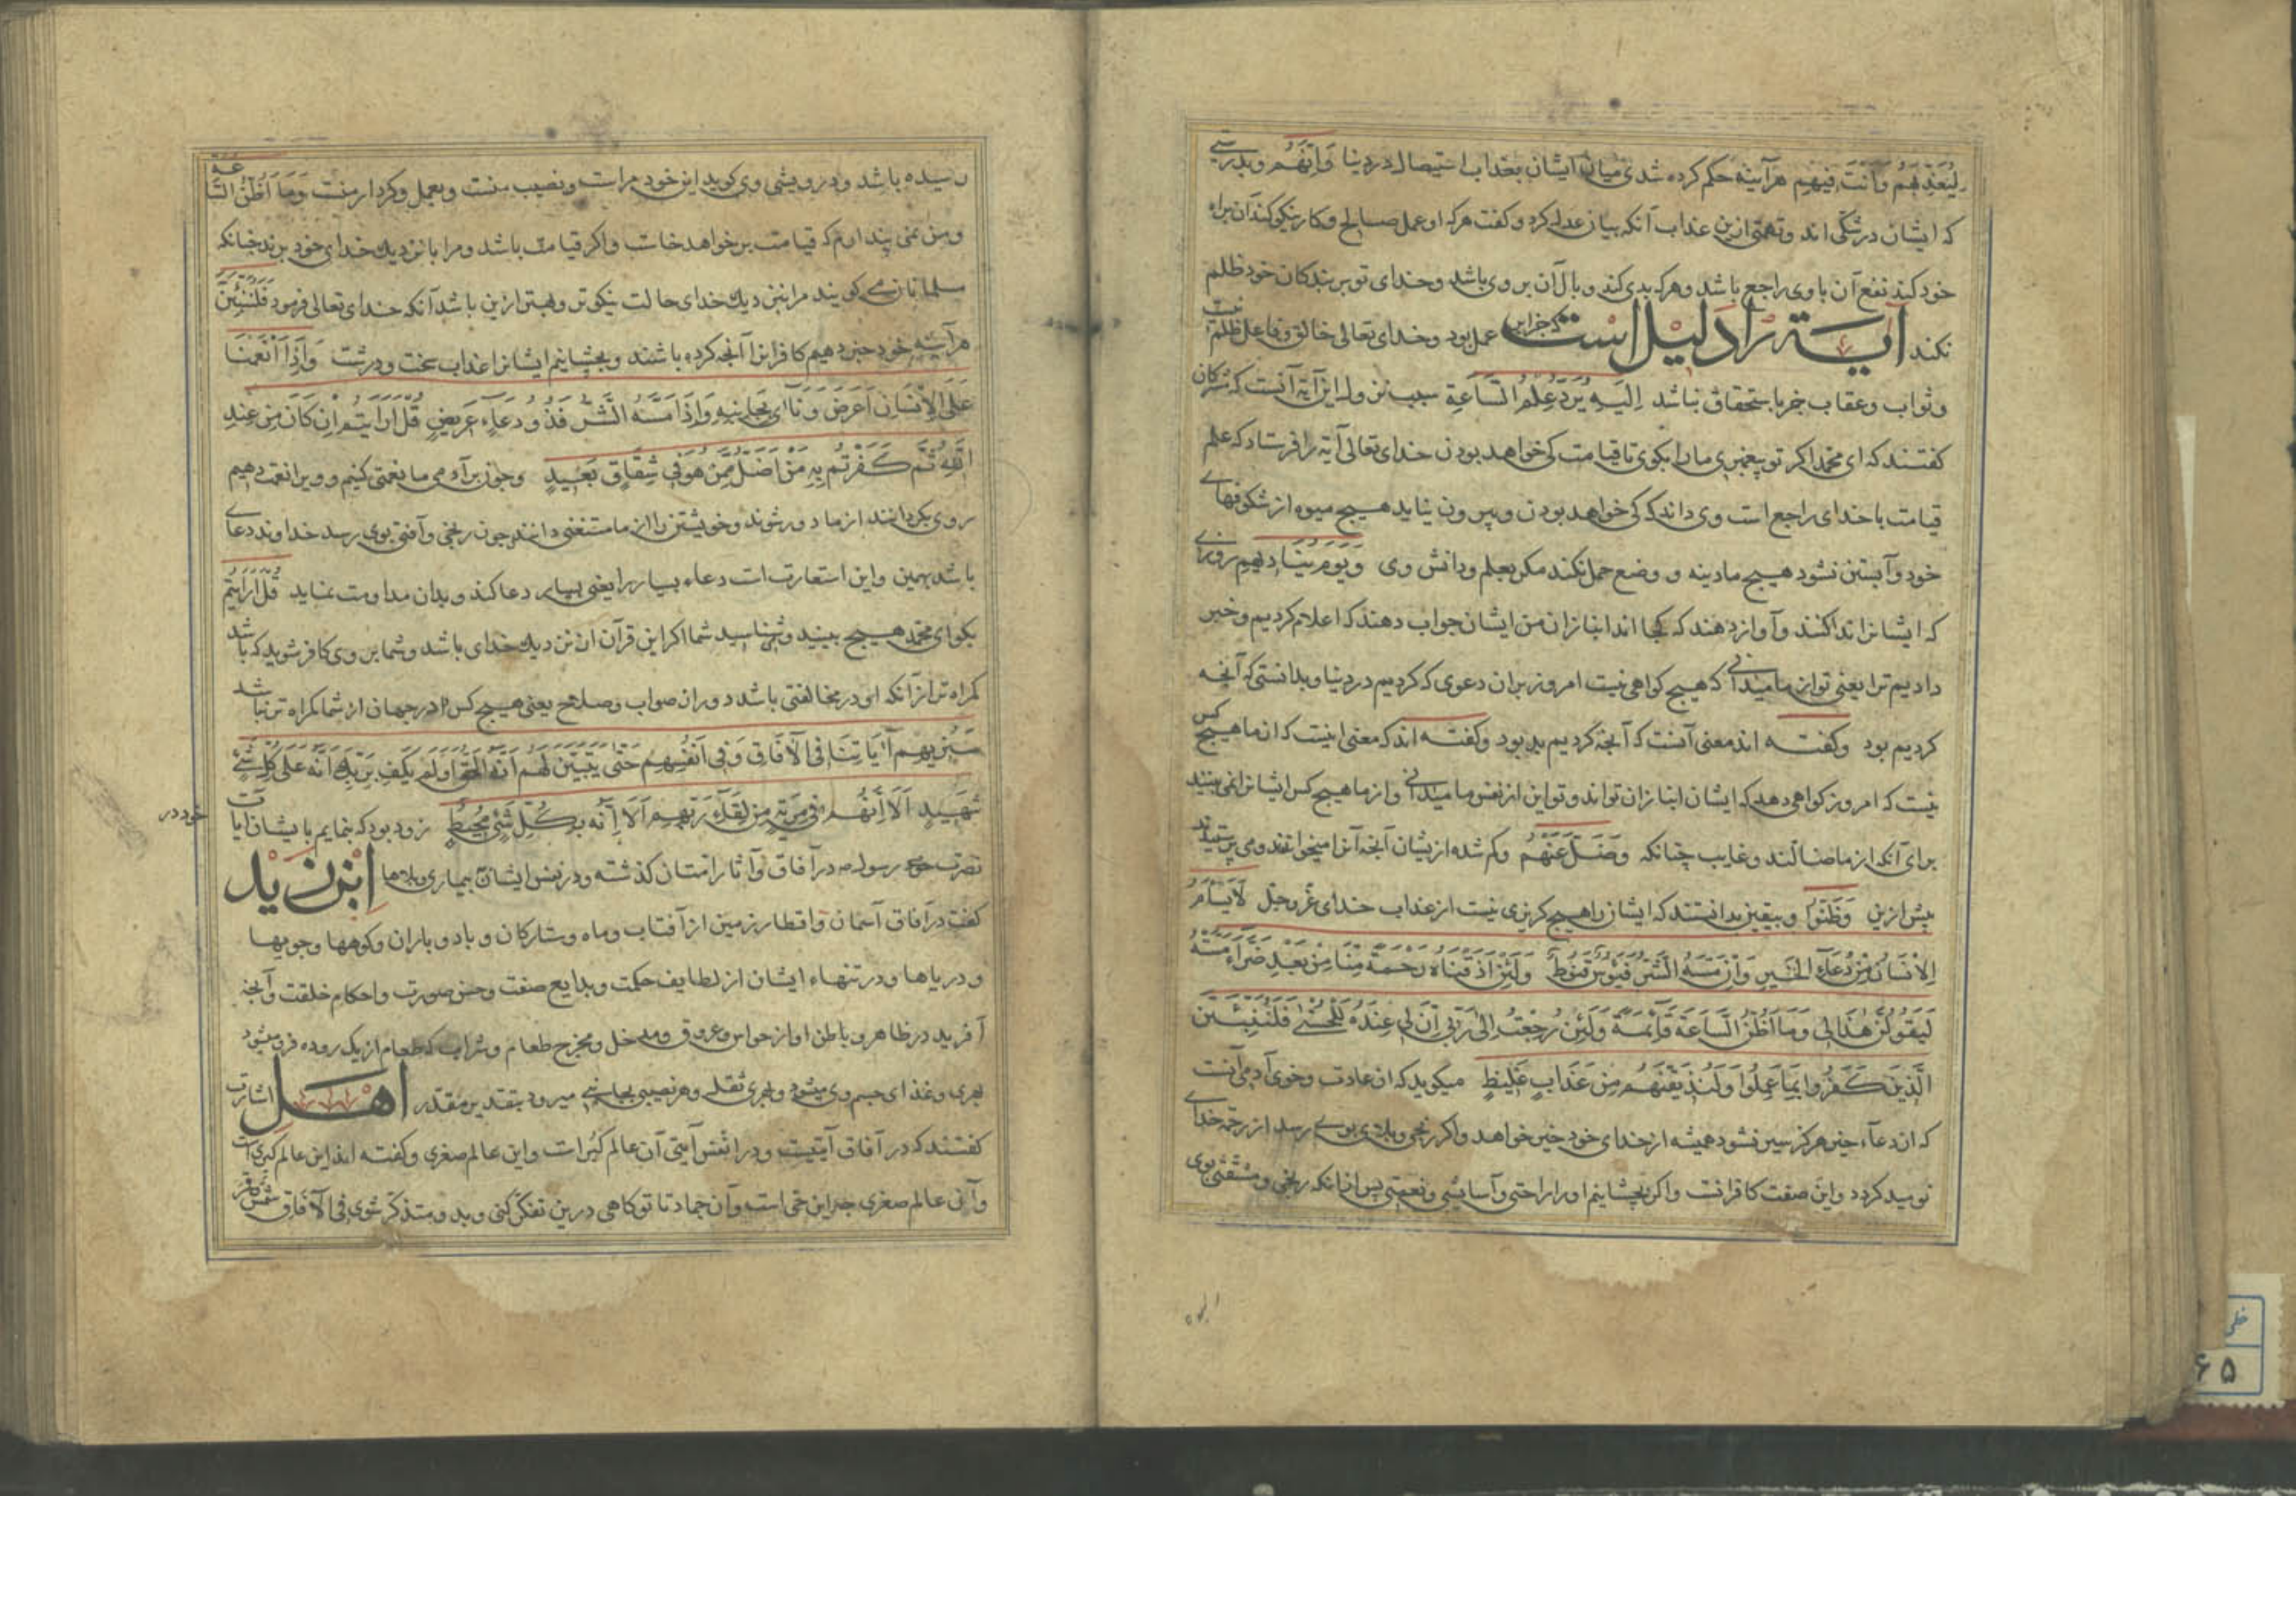 لیعذبهم وانت فیهم هرآینه حکم کرده شدی میان ایشان بعذاب استیصال در دنیا وَاِنَّهُم وبدرستی
که ایشان در شکی اند وتهمتی ازین عذاب آنکه بیان عدل کرد وکفت هرکه او عمل صالح وکار نیکو کند آن براه
خود کند نفع آن با وی راجع باشد وهرکه بدی کند وبال آن بر وی باشد وخدای تو بر بندکان خود ظلم
نکند آیة را دلیل است که جزا بر عمل بود وخدای تعالی خالق وفاعل ظلم نیست
وثواب وعقاب جز باستحقاق نباشد اِلَیهِ یُرَدُّ عِلمُ السّاعَةِ سبب نزول این آیة آنست که مشرکان
کفتند که ای محمد اکر تو پیغمبری ما را بکوی تا قیامت کی خواهد بودن خدای تعالی آیة را فرستاد که علم
قیامت با خدای راجع است وی داند که کی خواهد بودن وبیرون نیاید هیچ میوه از شکوفهای
خود وآبستن نشود هیچ مادینه و وضع حمل نکند مکر بعلم ودانش وی وَیَومَ یُنَادِیهِم روزی
که ایشانرا ندا کنند وآواز دهند که کجا اند انبازان من ایشان جواب دهند که اعلام کردیم وخبر
دادیم ترا یعنی تو از ما میدانی که هیچ کواهی نیست امروز بران دعوی که کردیم در دنیا وبدانستی که آنچه
کردیم بود وکفته اند معنی آنست که آنچه کردیم بد بود وکفته اند که معنی اینست که از ما هیچ کس
نیست که امروز کواهی دهد که ایشان انبازان تواند وتو این از نفوس ما میدانی و از ما هیچ کس ایشانرا نمی بیند
برای آنکه از ما ضالند وغایب چنانکه وَضَلَّ عَنهُم وکم شده از یشان آنچه آنرا میخواندند ومی پرستیدند
پیش ازین وَظَنّوا وبیقین بدانستند که ایشان را هیچ کریزی نیست از عذاب خدای عز وجل لَایَسأَمُ
اِلاِنسَانُ مِن دُعَاءِ الخَیرِ وَاِن مَسَّهُ الشَّرُّ فَیَؤُسٌ قَنُوطٌ وَلَئِن اَذَقنَاهُ رَحمَةً مِنَّا مِن بَعدِ ضَرَّاءَ مَسَّتهُ
لَیَقُولَنَّ هَذَا لِی وَمَا اَظُنُّ السَّاعَةَ قَائِمَةً وَلَئِن رُجِعتُ اِلَی رَبِّی اِنَّ لِی عِندَهُ لَلحُسنَی فَلَنُنَبِّئَنَّ
الَّذِینَ کَفَرُوا بِمَا عَمِلُوا وَلَنُذِیقَنَّهُم مِن عَذَابٍ غَلِیظٍ میکوید که از عادت وخوی آدمی آنست
که از دعاء خیر هرکز سیر نشود همیشه از خدای خود خیر خواهد واکر رنجی وبلائی بوی رسد از رحمة خدای
نومید کردد واین صفت کافرانست واکر بچشانیم او را راحتی وآسایشی ونعمتی پس از انکه رنجی ومشقتی بوی
رسیده باشد ودرویشی وی کوید این خود مراست ونصیب منست وبعمل وکردار منست وَمَا اَظُنُّ السَّاعَةَ
ومن نمی پندارم که قیامت بر خواهد خاست واکر قیامت باشد ومرا با نزدیك خدای خود برند چنانکه
مسلمانان می کویند مرا بنزدیك خدای حالت نیکوتر وبهتر ازین باشد آنکه خدای تعالی فرمود فَلَنُنَبِّئَنَّ
هرآینه خود خبر دهیم کافرانرا آنچه کرده باشند وبچشانیم ایشانرا عذاب سخت ودرشت وَاِذَا اَنعَمنَا
عَلَی الاِنسَانِ اَعرَضَ وَنَاَی بِجَانِبِهِ وَاِذَا مَسَّهُ الشَّرُّ فَذُو دُعَاءٍ عَرِیضٍ قُل اَرَاَیتُم اِن کَانَ مِن عِندِ
اللّهِ ثُمَّ کَفَرتُم بِهِ مَن اَضَلُّ مِمَّن هُوَ فِی شِقَاقٍ بَعِیدٍ وچون بر آدمی ما نعمتی کنیم وویرا نعمت دهیم
روی بکردانند از ما دور شوند وخویشتن را از ما مستغنی دانند وچون رنجی وآفتی بوی رسد خداوند دعای
باشد پهن واین استعارت است دعاء بسیار را یعنی بسیار دعا کند وبدان مداومت نماید قُل اَرَاَیتُم
بکو ای محمد هیچ ببینید وشناسید شما اکر این قرآن از نزدیك خدای باشد وشما بر وی کافر شوید که باشد
کمراه تر از آنکه او در مخالفتی باشد دور ان صواب وصلاح یعنی هیچ کس در جهان از شما کمراه تر نباشد
سَنُرِیهِم آیَاتِنَا فِی الآفَاقِ وَفِی اَنفُسِهِم حَتَّی یَتَبَیَّنَ لَهُم اَنَّهُ الحَقُّ اَوَلَم یَکفِ بِرَبِّكَ اَنَّهُ عَلَی کُلِّ شَیءٍ
شَهِیدٌ اَلَا اِنَّهُم فِی مِریَةٍ مِن لِقَاءِ رَبِّهِم اَلَا اِنَّهُ بِکُلِّ شَیءٍ مُحِیطٌ زود بود که بنمایم با یشان آیات
خود در
نصرت رسول در آفاق وآثار امتان کذشته ودر نفس ایشان بیماری وبلاها اِبن زید
کفت در آفاق آسمان واقطار زمین از آفتاب وماه وستارکان وباد وباران وکوهها وجویها
ودریاها ودر تنهاء ایشان از لطایف حکمت وبدایع صنعت وحسن صورت واحکام خلقت وآنچه
آفرید در ظاهر وباطن او از حواس وعروق ومدخل ومخرج طعام وشراب که طعام از یک روده فرو میشود
وغذای جسم وی میشود ومجری ثقلی وهر نصیبی بجانبی میرود بتقدیر مقدر اهل اشارت
کفتند که در آفاق آیتیست ودر انفس آیتی آن عالم کبرا ست واین عالم صغری وکفته اند این عالم کبری است
وآن عالم صغری است وآن جماد تا تو کاهی درین تفکر کنی وبدو متذکر شوی فی الآفاق شمس وقمر
خطی
۶۵